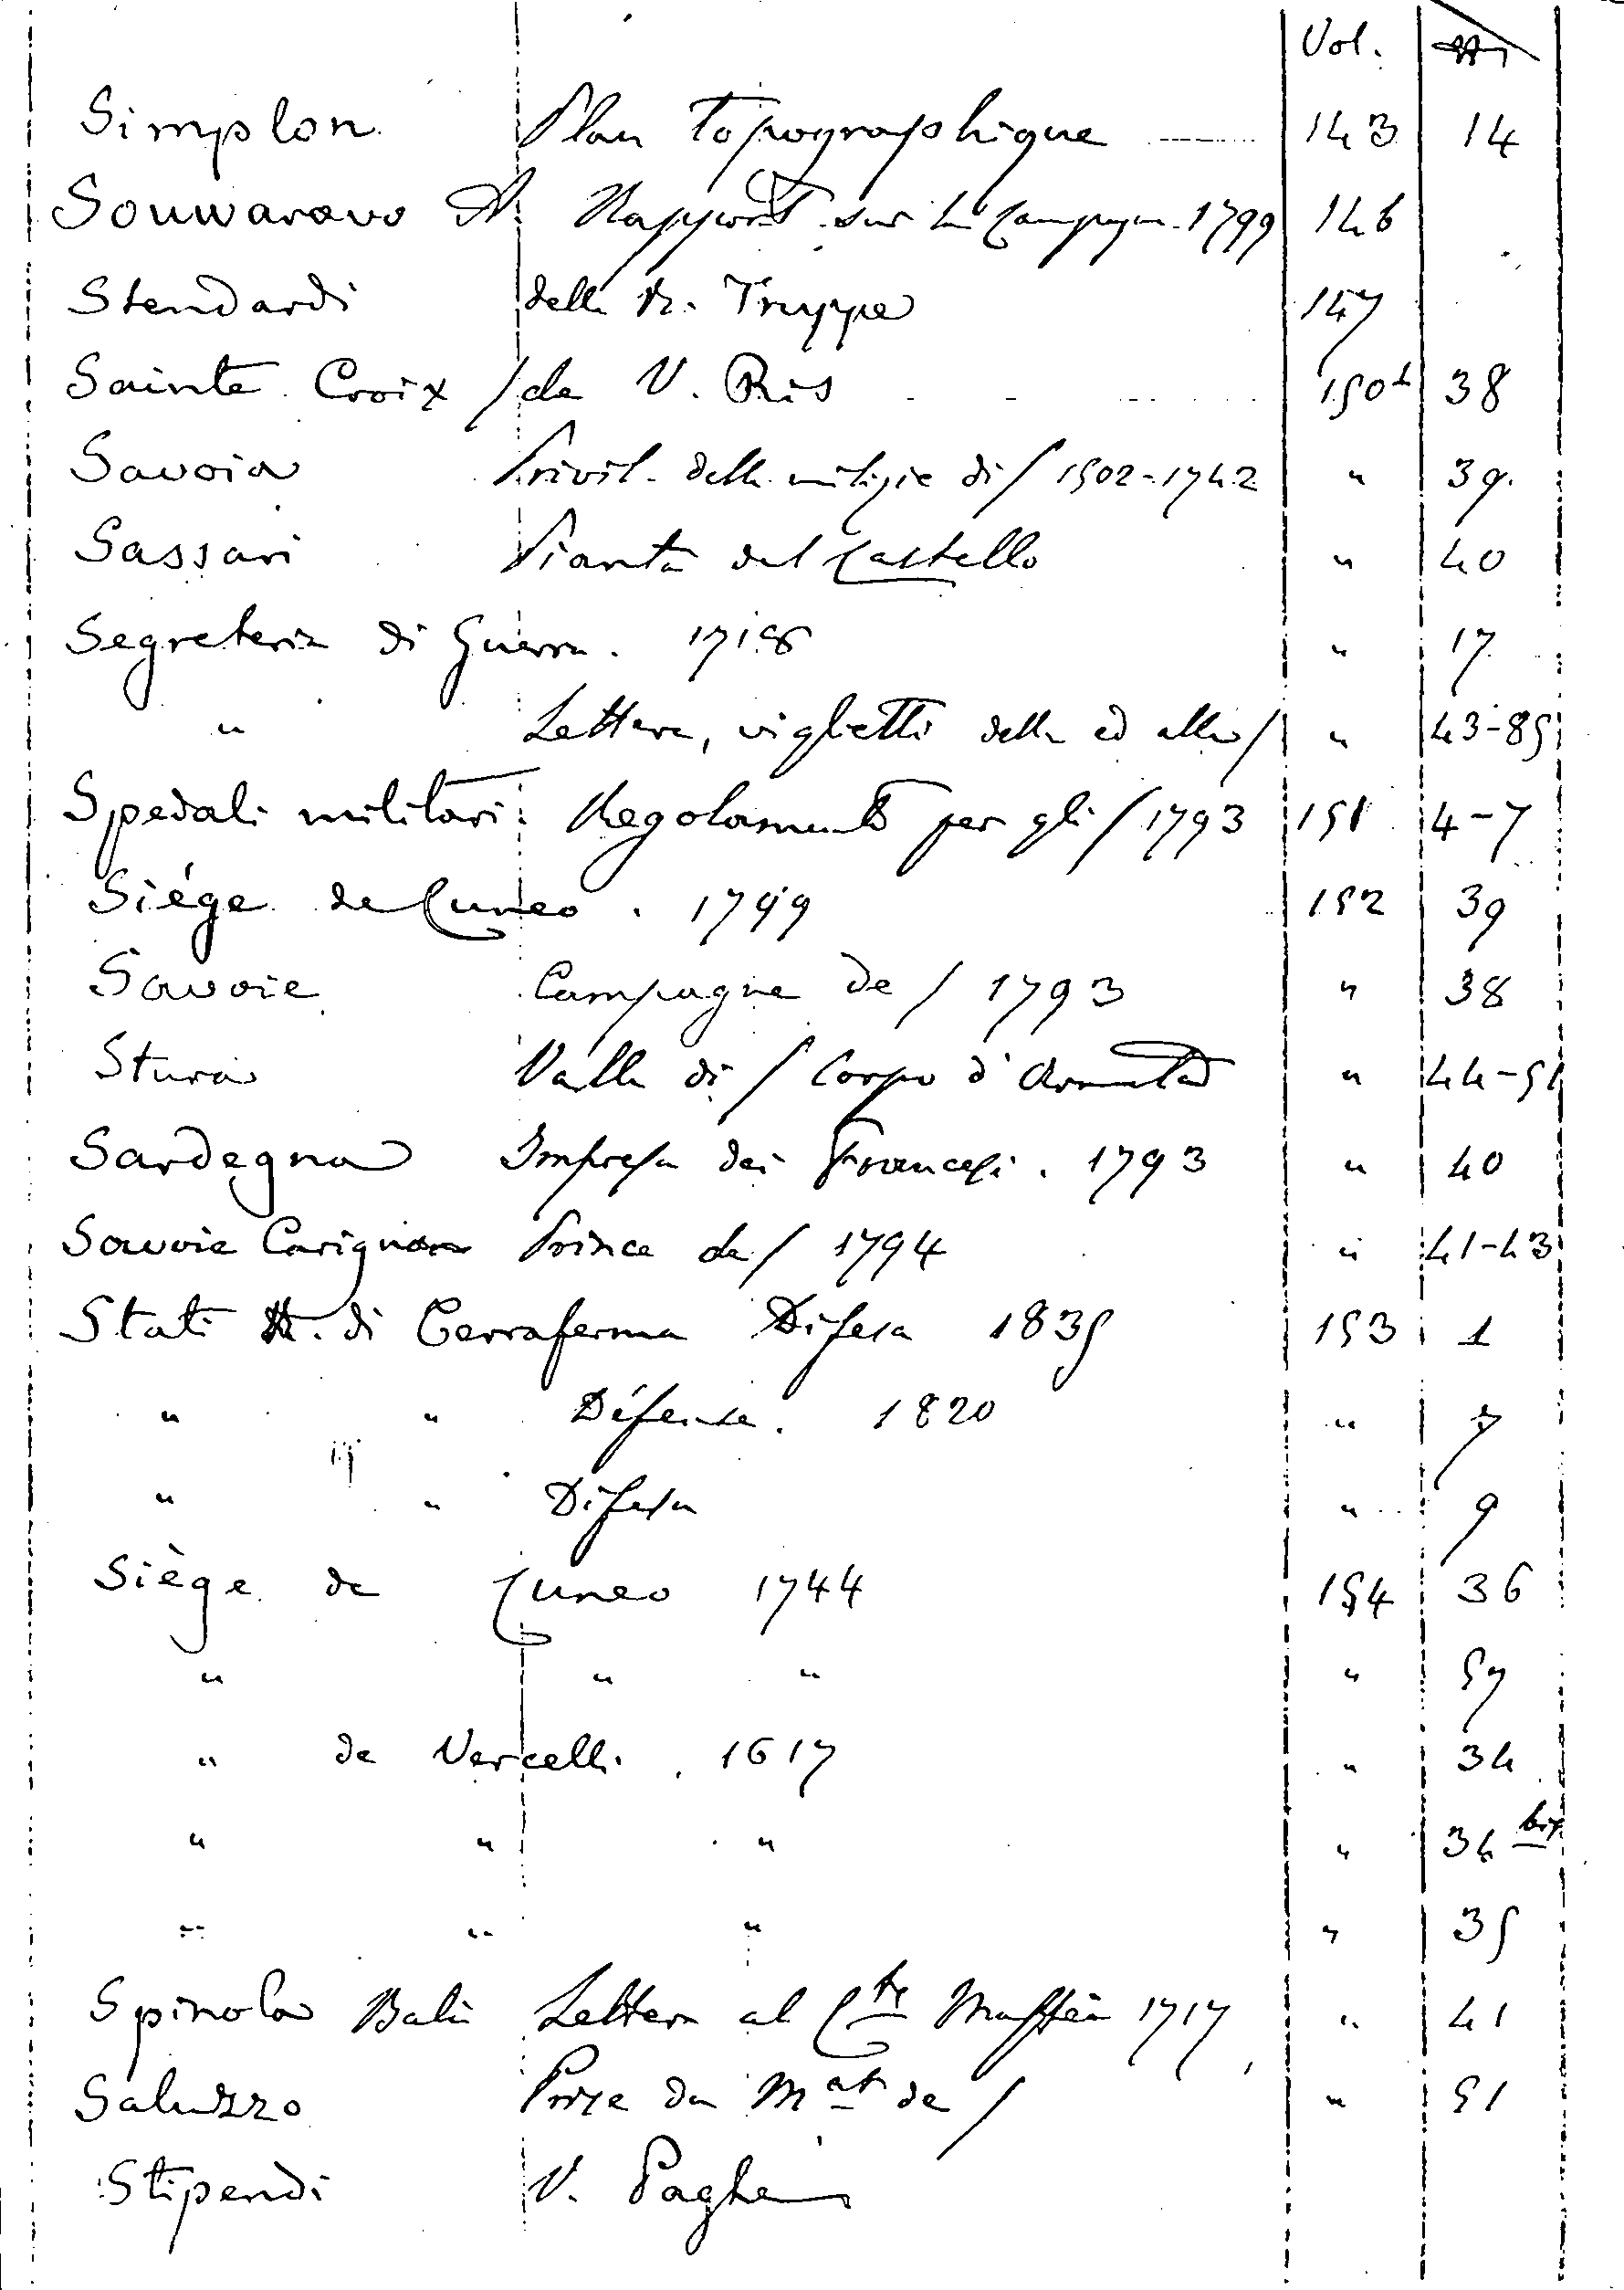 Vol.
Simplon Plan Topographique 143 14
Souwarow A. Rapport sur la Campagne 1799 146
Stendardi delle R. Truppe 147
Sainte Croix / de V. Ris 150 38
Savoia Privil. delle milizie di / 1502-1742 " 39.
Sassari Pianta del Castello " 40
Segreteria di Guerra. 1718 " 17
" Lettere, viglietti della ed alla / " 43-85
Spedali militari Regolamento per gli / 1793 151 4-7
Siége de Cuneo. 1799 152 39
Savoie Campagne de / 1793 " 38
Stura Valle di / Corpo d'Armata " 44-51
Sardegna Impresa dei Francesi. 1793 " 40
Savoie Carignan Prince de / 1794 " 41-43
Stati R. di Terraferma Difesa 1835 153 1
" " Défense. 1820 " 7
" " Difesa " 9
Siège de Cuneo 1744 154 36
" " " " 57
" de Vercelli. 1617 " 34
" " " " 34 bis
" " " " 35
Spinola Bali Lettera al Cte Maffei 1717 " 41
Saluzzo Prise du Mat de / " 51
Stipendi V. Paghe